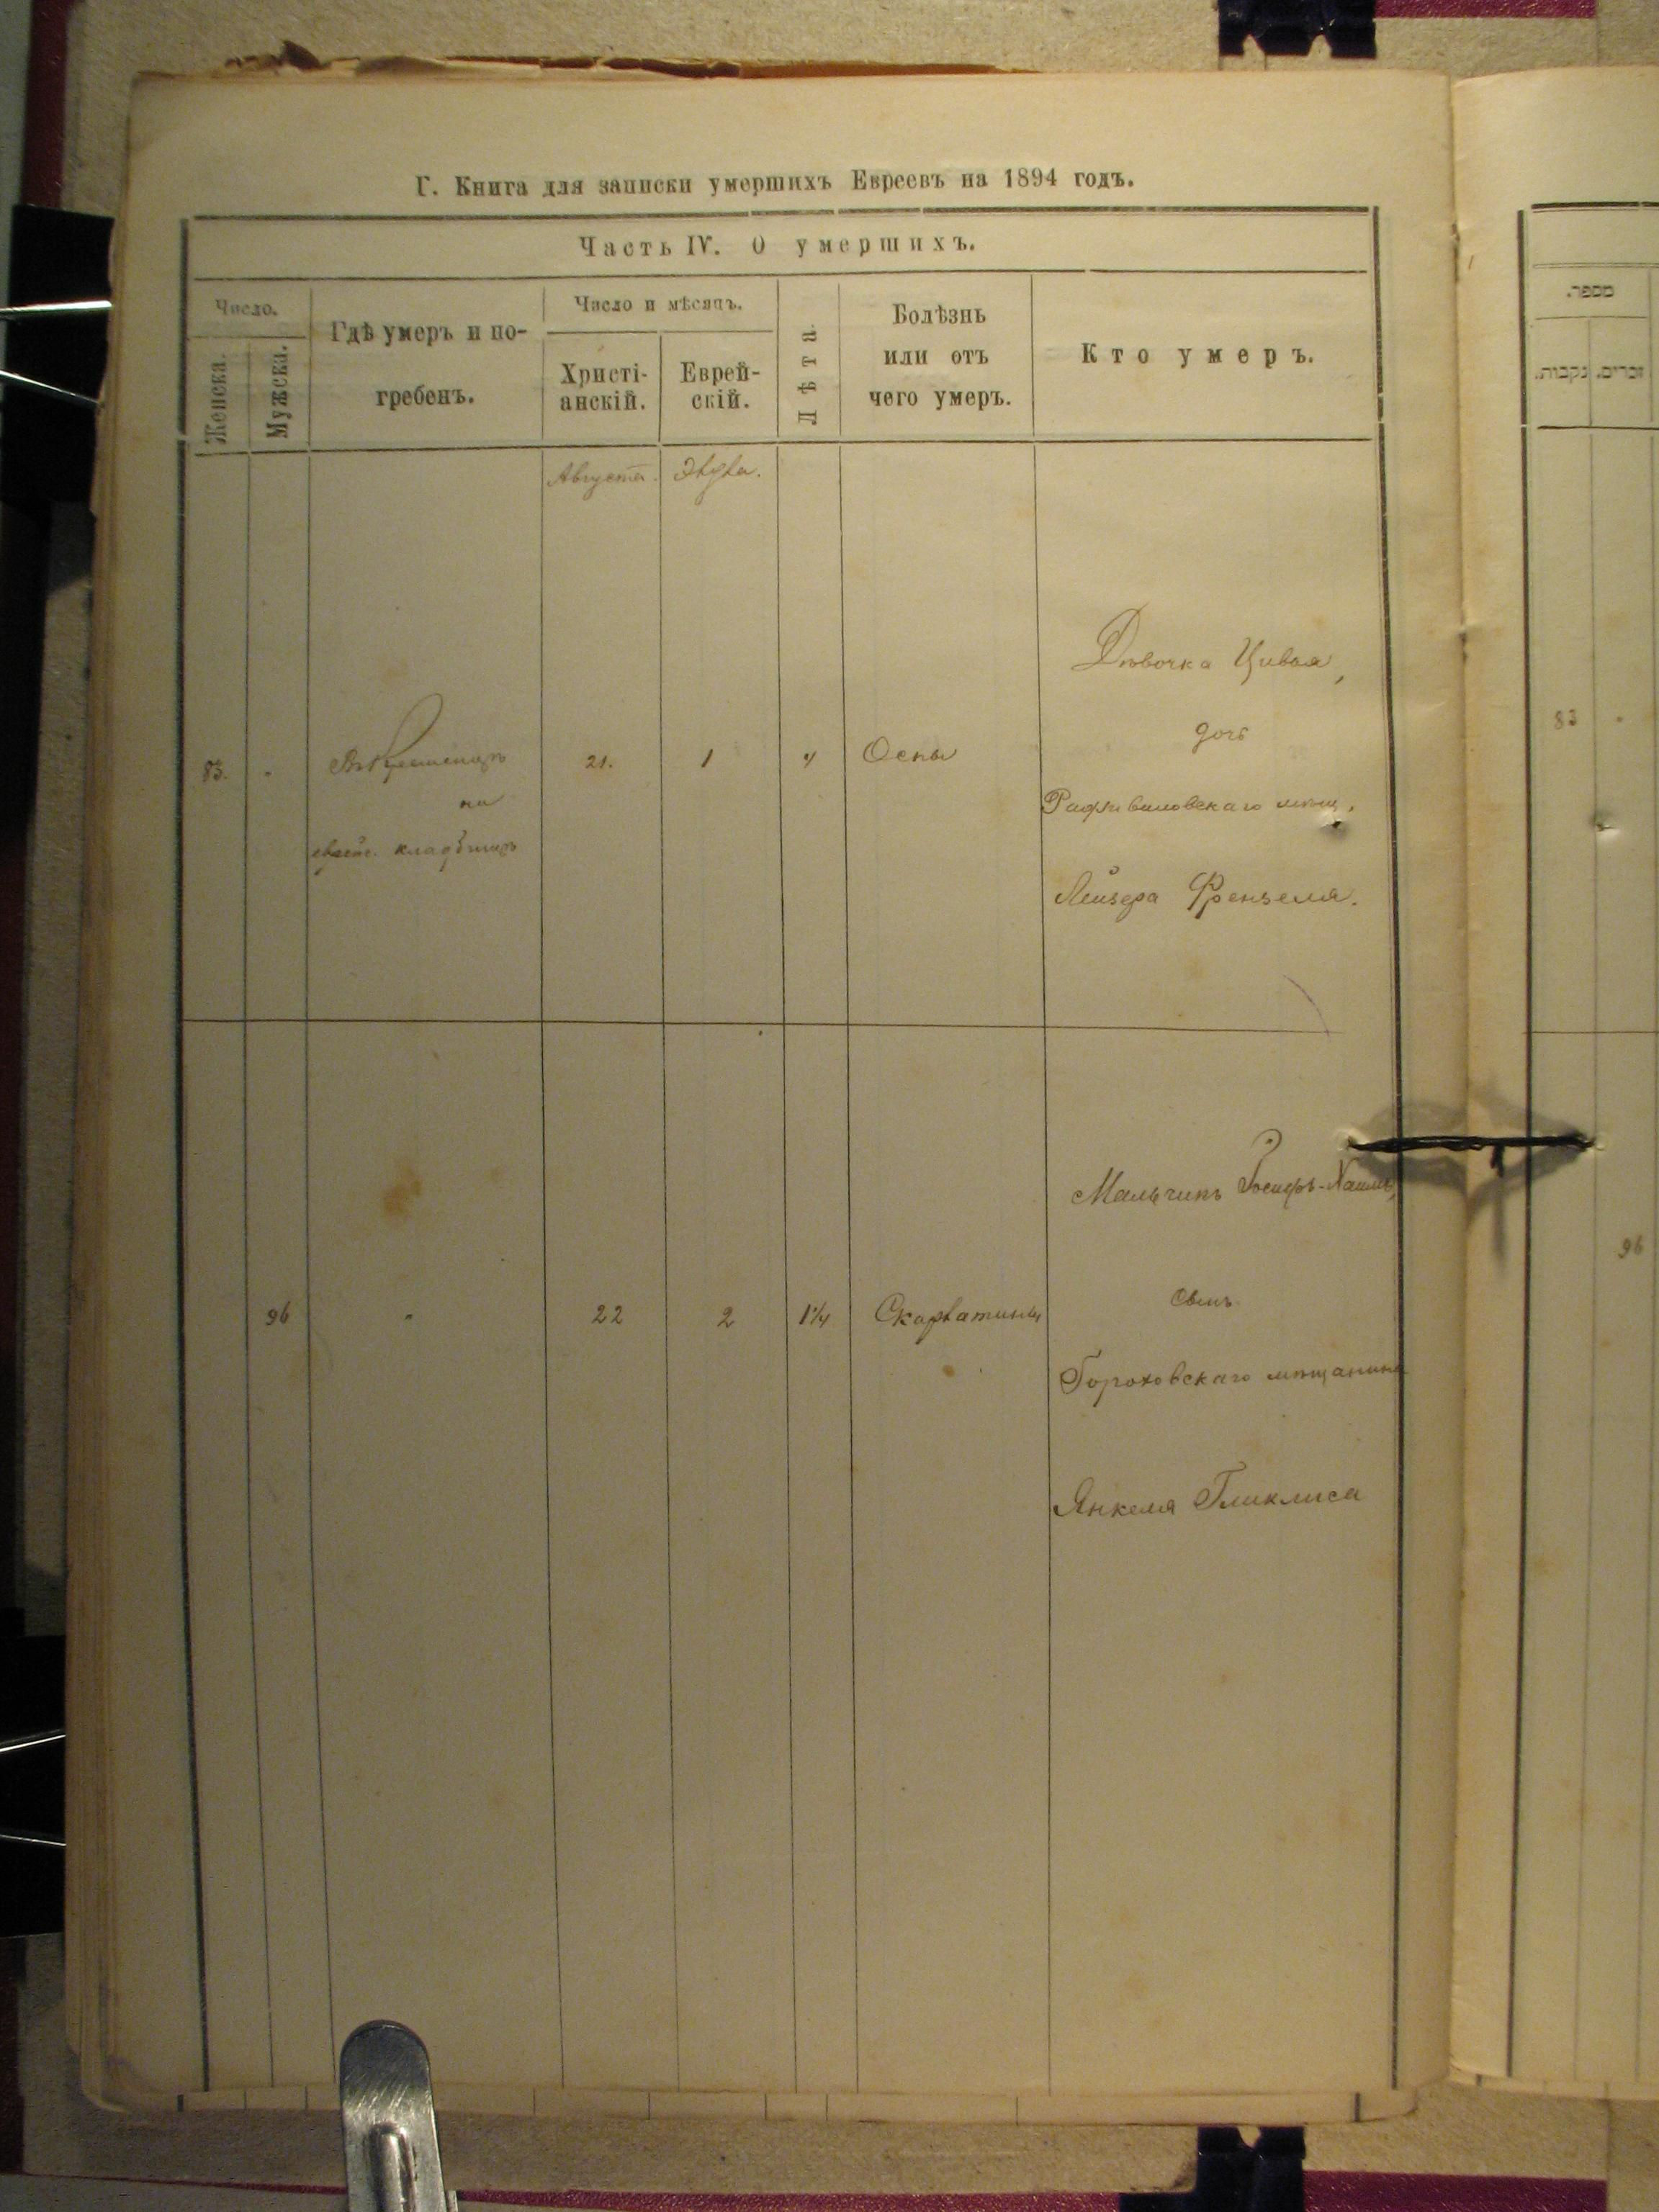 Г. Книга для записки умершихъ Евреевъ на 1894 годъ.
Часть IV. О умершихъ.
Число.
Женска.
Мужска.
Гдѣ умеръ и по-
гребенъ.
Число и мѣсяцъ.
Христі-
анскій.
Еврей-
скій.
Лѣта.
Болѣзнь
или отъ
чего умеръ.
Кто умеръ.
Августа.
Элула.
Дѣвочка Цивья,
дочь
83.
"
на
еврейс. кладбищѣ
21.
1
"
Оспы
Радзивиловскаго мѣщ.
Лейзера Френзеля.
Мальчикъ Іосифъ-Хаимъ,
сынъ
96
"
22
2
1¼
Скарлатины
Гороховскаго мѣщанина
Янкеля Гликлиса
מספר.
זכרים.
נקבות.
83
"
96